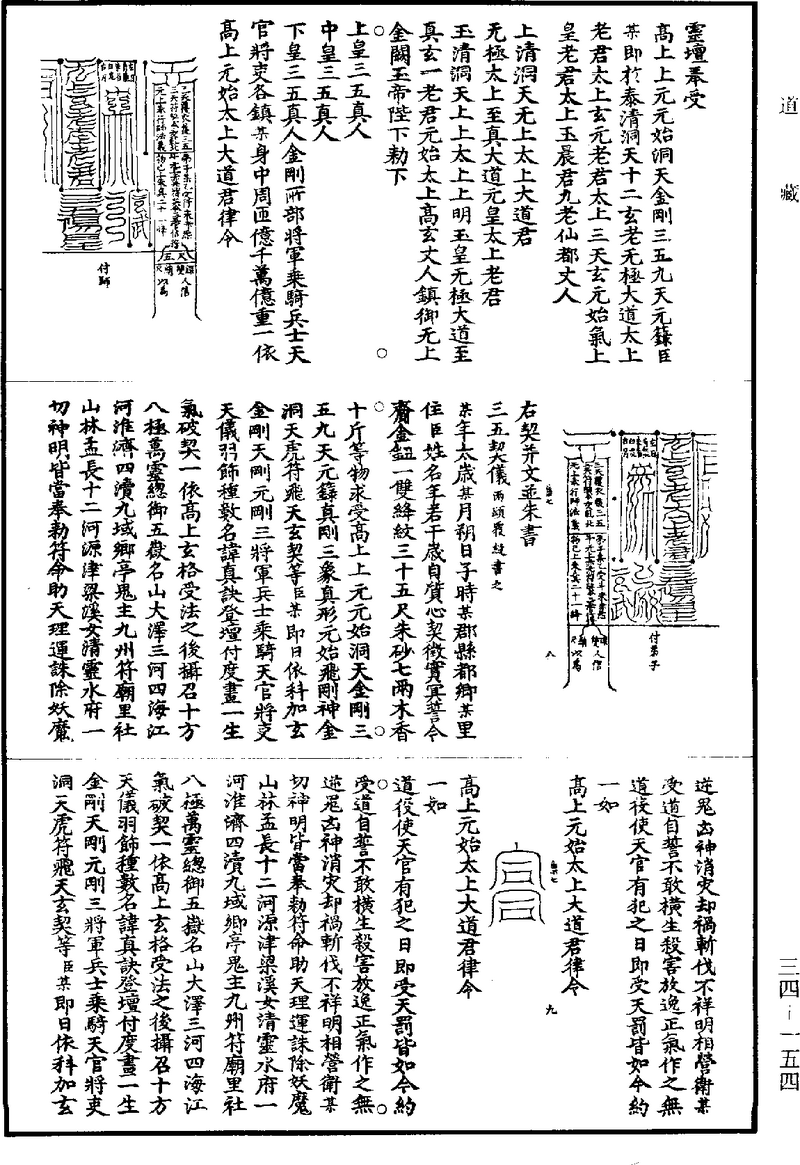 道藏
三四—一五四
靈壇奉受
高上上元元始洞天金剛三五九天元籙臣
某即於泰清洞天十二玄老无極大道太上
老君太上玄元老君太上三天玄元始氣上
皇老君太上玉晨君九老仙都丈人
上清洞天无上太上大道君
无極太上至真大道元皇太上老君
玉清洞天上上太上上明玉皇无極大道至
真玄一老君元始太上高玄丈人鎮御无上
金闕玉帝陛下勑下
上皇三五真人
中皇三五真人
下皇三五真人金剛所部將軍乘騎兵士天
官將吏各鎮某身中周匝億千萬億重一依
高上元始太上大道君律令
付師
付弟子
右契并文並朱書
三五契儀兩頭覆縫書之
某年太歲某月朔日子時某郡縣鄉某里
住臣姓名年若干歲自質心契徵實冥誓令
齎金鈕一雙絳紋三十五尺朱砂七兩木香
十斤等物求受高上上元元始洞天金剛三
五九天元籙真剛三象真形元始飛剛神金
洞天虎符飛天玄契等臣某即日依科加玄
金剛天剛元剛三將軍兵士乘騎天官將吏
天儀羽飾種數名諱真訣登壇付度畫一生
氣破契一依高上玄格受法之後攝召十方
八極萬靈總御五嶽名山大澤三河四海江
河淮濟四瀆九域鄉亭鬼主九州符廟里社
山林孟長十二河源津梁溪女清靈水府一
切神明皆當奉勑符命助天理運誅除妖魔
逆鬼凶神消灾却禍斬伐不祥明相營衛某
受道自誓不敢橫生殺害放逸正氣作之無
道役使天官有犯之日即受天罰皆如令約
一如
高上元始太上大道君律令
九
高上元始太上大道君律令
一如
道役使天官有犯之日即受天罰皆如令約
受道自誓不敢橫生殺害放逸正氣作之無
逆鬼凶神消灾却禍斬伐不祥明相營衛某
切神明皆當奉勑符命助天理運誅除妖魔
山林孟長十二河源津梁溪女清靈水府一
河淮濟四瀆九域鄉亭鬼主九州符廟里社
八極萬靈總御五嶽名山大澤三河四海江
氣破契一依高上玄格受法之後攝召十方
天儀羽飾種數名諱真訣登壇付度畫一生
金剛天剛元剛三將軍兵士乘騎天官將吏
洞天虎符飛天玄契等臣某即日依科加玄